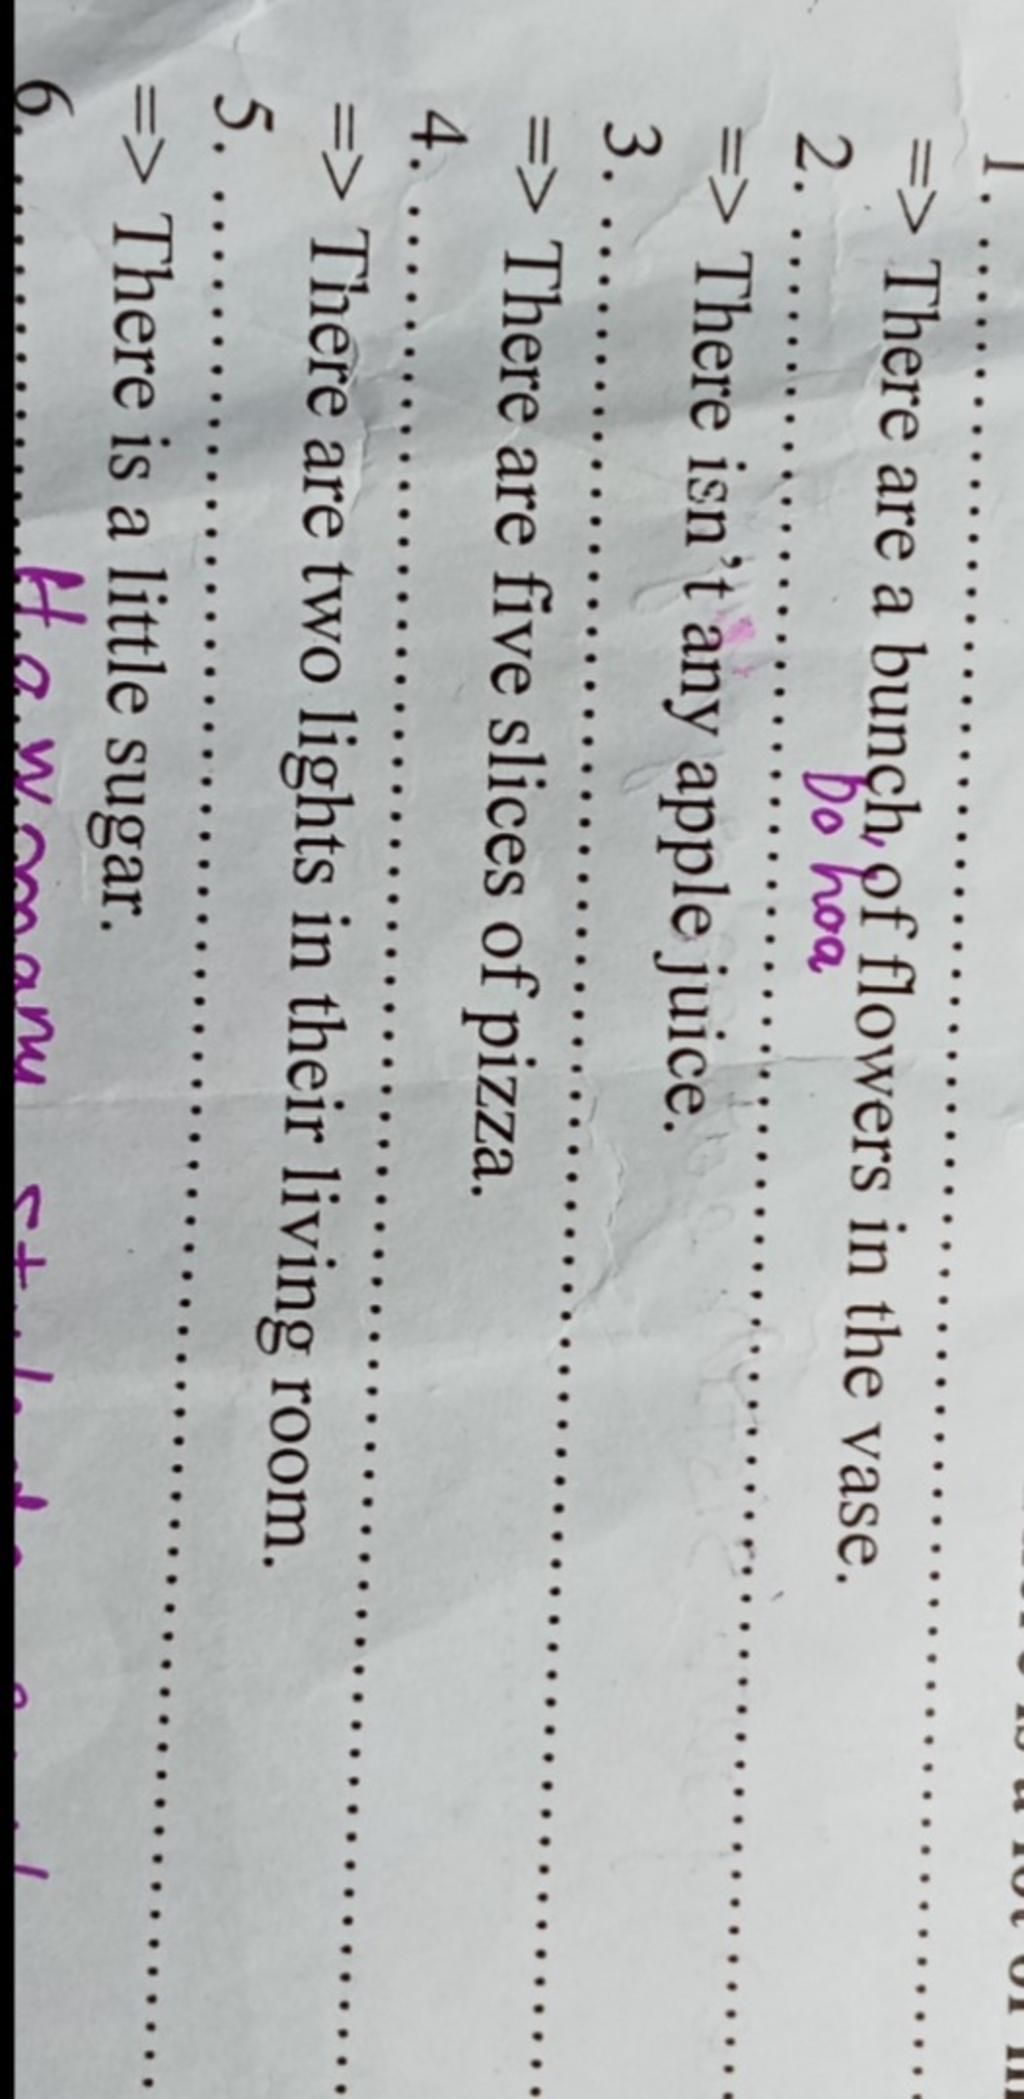 is a lot of
1. ........................................................................
=> There are a bunch of flowers in the vase.
bó hoa
2. ........................................................................
=> There isn't any apple juice.
3. ........................................................................
=> There are five slices of pizza.
4. ........................................................................
=> There are two lights in their living room.
5. ........................................................................
=> There is a little sugar.
6. ............ How many